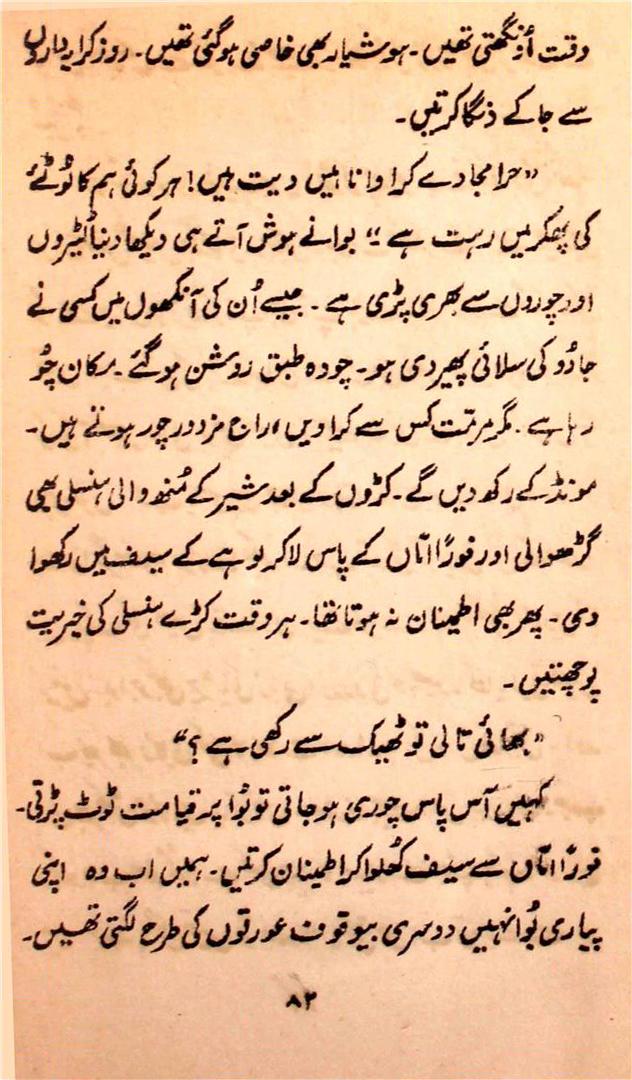 وقت اُونگھتی تھیں۔ ہوشیار بھی خاصی ہوگئی تھیں۔ روز کرایہ داروں
سے جا کے دنگا کرتیں۔
"حرامجادے کراوا نا ہیں دیت ہیں! ہر کوئی ہم کا لُوٹے
کی پھکر میں رہت ہے" بوا نے ہوش آتے ہی دیکھا دنیا لٹیروں
اور چوروں سے بھری پڑی ہے۔ جیسے اُن کی آنکھوں میں کسی نے
جادُو کی سلائی پھیر دی ہو۔ چودہ طبق روشن ہوگئے۔ مکان چُو
رہا ہے۔ مگر مرمّت کس سے کراویں، راج مزدور چور ہوتے ہیں۔
مونڈ کے رکھ دیں گے۔ کڑوں کے بعد شیر کے مُنھ والی ہنسلی بھی
گڑھوالی اور فوراً اماّں کے پاس لا کر لوہے کے سیف میں رکھوا
دی۔ پھر بھی اطمینان نہ ہوتا تھا۔ ہر وقت کڑے ہنسلی کی خیریت
پوچھتیں۔
"بھائی تالی تو ٹھیک سے رکھی ہے؟"
کہیں آس پاس چوری ہو جاتی تو بُوا پر قیامت ٹوٹ پڑتی۔
فوراً اماّں سے سیف کُھلوا کر اطمینان کرتیں۔ ہمیں اب وہ اپنی
پیاری بُوا نہیں دوسری بیوقوف عورتوں کی طرح لگتی تھیں۔
۸۲